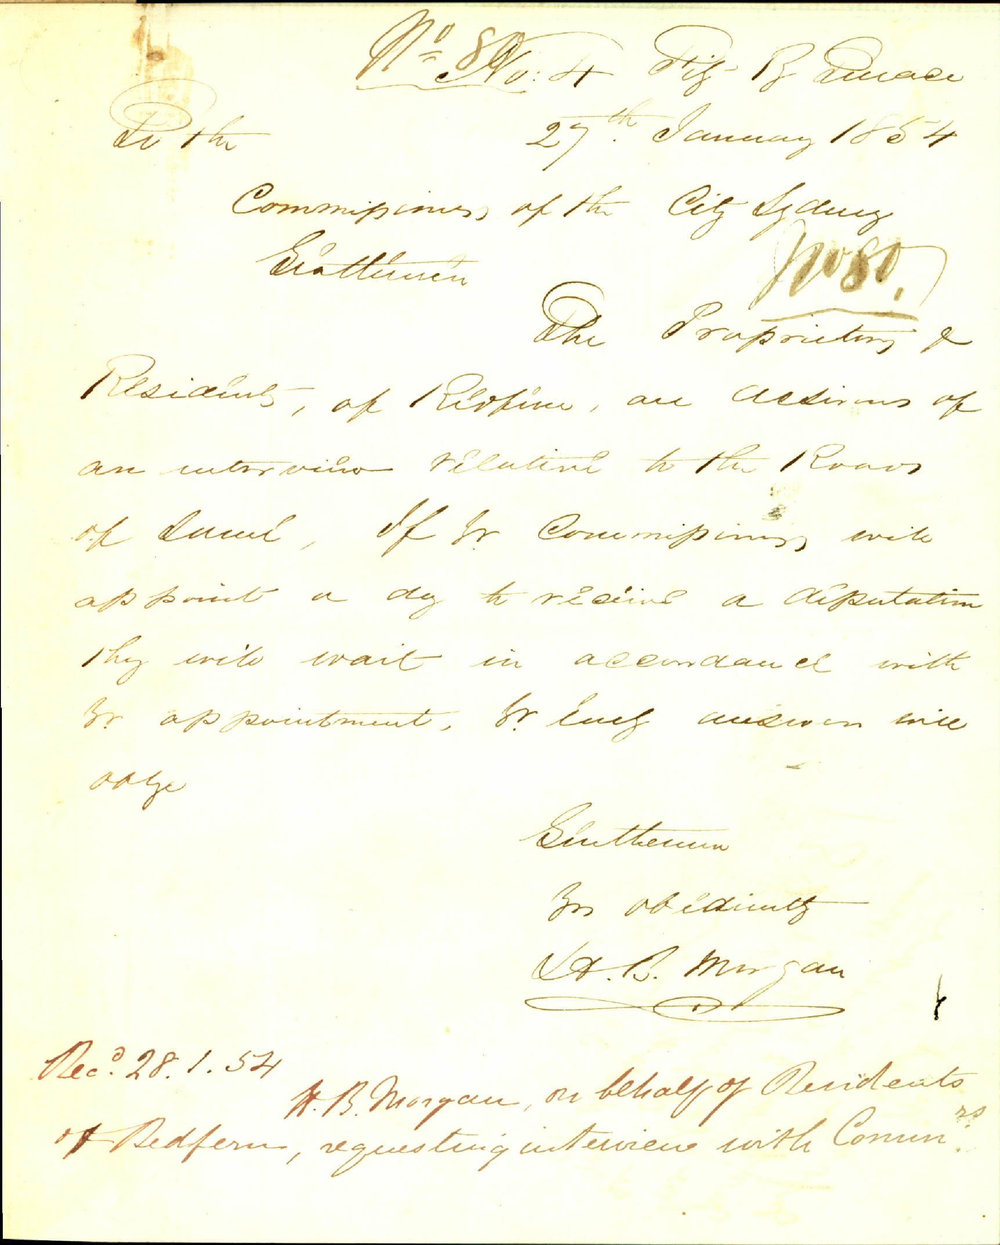 No 80
No: 4 Fitz Ry Terrace
To the 27th January 1854
Commissioners of the City Sydney
Gentlemen
No 80.
The Proprietors &
Residents, of Redfern, are desirous of
an interview relative to the Roads
of Same, If Yr Commissioners will
appoint a day to receive a deputation
they will wait in accordance with
Yr appointment, Yr early answer will
oblge
Gentlemen
Yrs obediently
H. B. Morgan
Recd. 28.1.54
H. B. Morgan, on behalf of Residents
of Redfern, requesting interview with Commnrs.